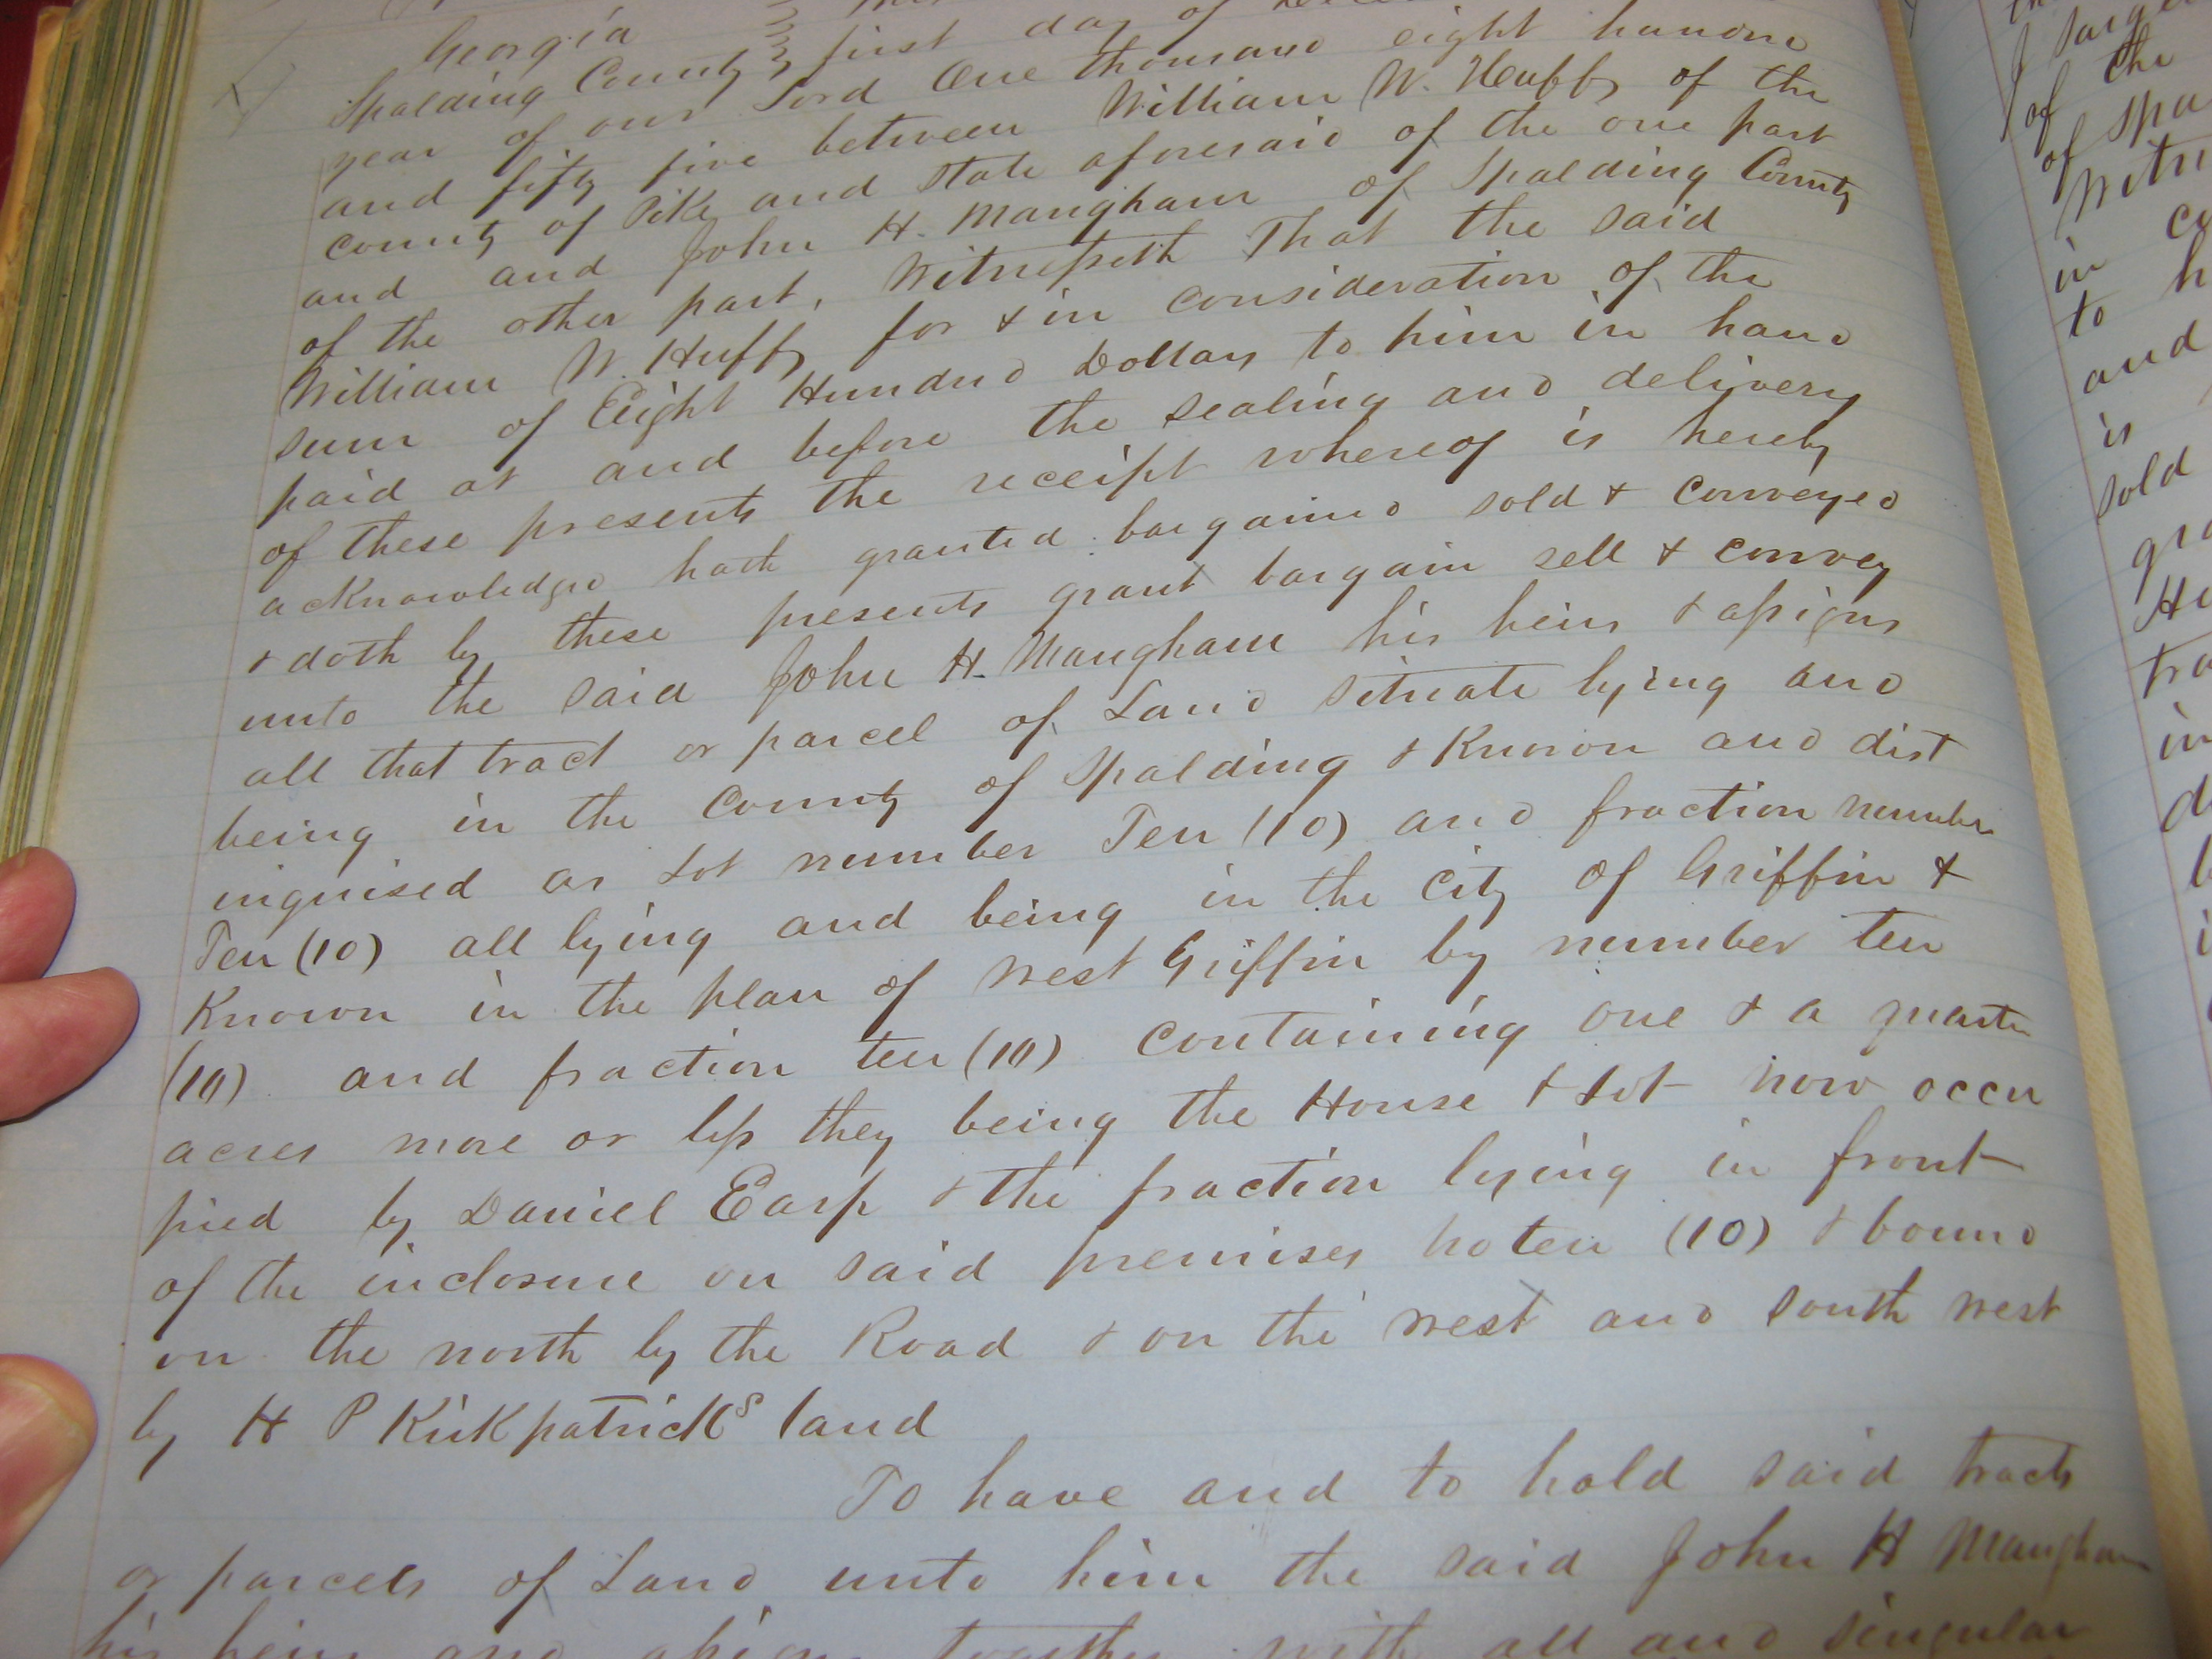 Georgia
Spalding County first day of
year of our Lord One thousand eight hundred
and fifty five between William W. Huff of the
County of Pike and State aforesaid of the one part
and and John H. Mangham of Spalding County
of the other part, Witnesseth That the said
William W. Huff for & in consideration of the
sum of Eight Hundred Dollars to him in hand
paid at and before the sealing and delivery
of these presents the receipt whereof is hereby
acknowledged hath granted bargained sold & conveyed
& doth by these presents grant bargain sell & convey
unto the said John H. Mangham his heirs & assigns
all that tract or parcel of Land situate lying and
being in the County of Spalding & Known and dist
inguised as Lot number Ten (10) and fraction number
Ten (10) all lying and being in the City of Griffin &
Known in the plan of West Griffin by number ten
(10) and fraction ten (10) containing one & a quarter
acres more or less they being the House & Lot now occu
pied by Daniel Earp & the fraction lying in front
of the inclosure on said premises no ten (10) & bound
on the north by the Road & on the west and south west
by H P Kirkpatricks land
To have and to hold said tracts
or parcels of Land unto him the said John H Mangham
his heirs and assigns together with all and singular
J
of the
of Spa
Witn
in
to h
and
is
sold
in